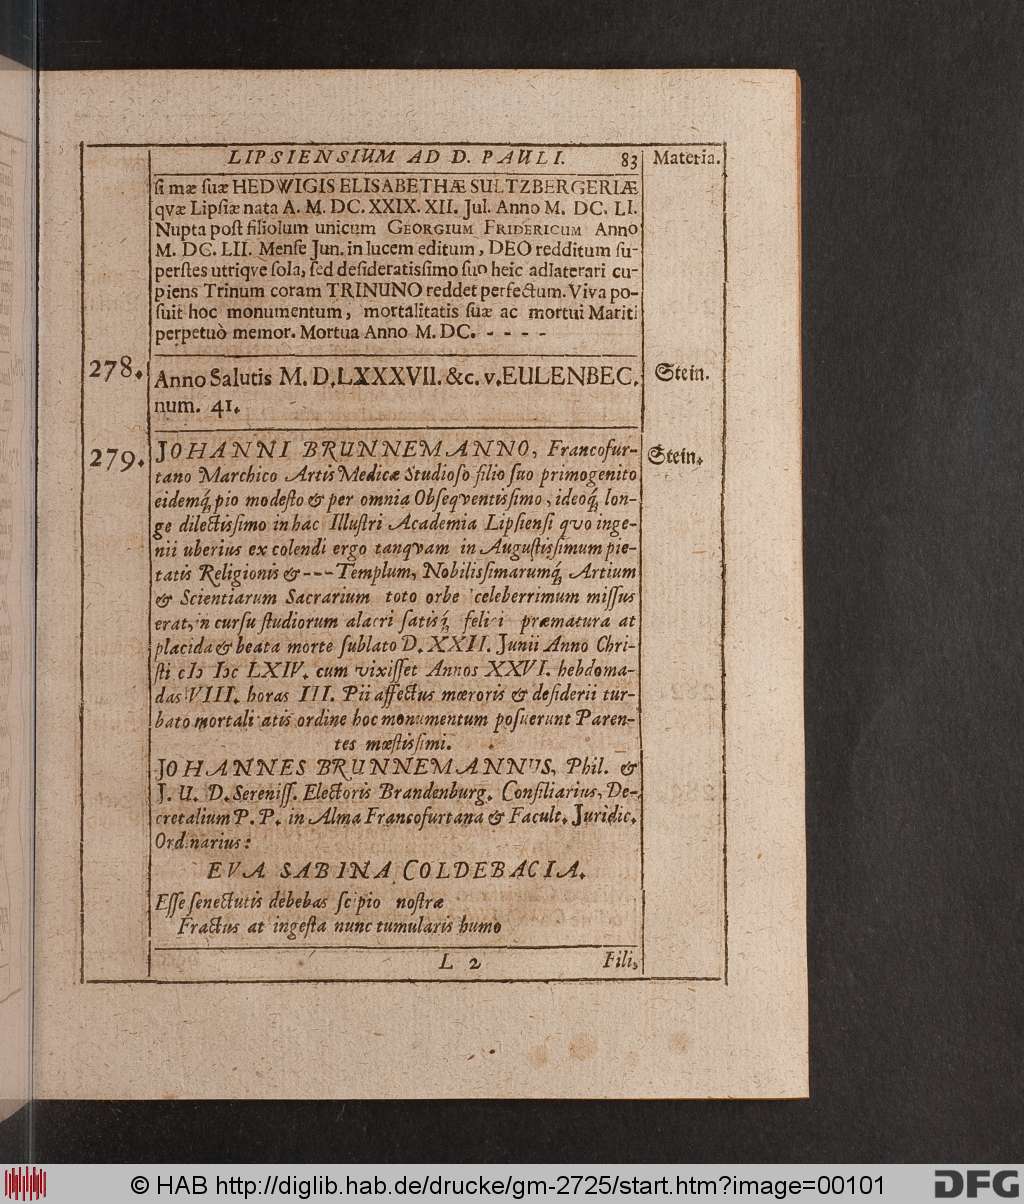 LIPSIENSIUM AD D. PAULI. 83 Materia.
ſi mæ ſuæ HEDWIGIS ELISABETHÆ SULTZBERGERIÆ
qvæ Lipſiæ nata A. M. DC. XXIX. XII. Jul. Anno M. DC. LI.
Nupta poſt filiolum unicum GEORGIUM FRIDERICUM Anno
M. DC. LII. Menſe Jun. in lucem editum, DEO redditum ſu-
perſtes utriqve ſola, ſed deſideratiſſimo ſuo heic adlaterari cu-
piens Trinum coram TRINUNO reddet perfectum. Viva po-
ſuit hoc monumentum, mortalitatis ſuæ ac mortui Mariti
perpetuò memor. Mortua Anno M. DC. - - - -
278. Anno Salutis M. D. LXXXVII. &c. v. EULENBEC. Stein.
num. 41.
279. JOHANNI BRUNNEMANNO, Francofur- Stein.
tano Marchico Artis Medicæ Studioſo filio ſuo primogenito
eidemq́; pio modeſto & per omnia Obſeqventiſſimo, ideoq́; lon-
ge dilectiſſimo in hac Illuſtri Academia Lipſienſi qvo inge-
nii uberius ex colendi ergo tanqvam in Auguſtiſſimum pie-
tatis Religionis & - - - Templum, Nobiliſſimarumq́; Artium
& Scientiarum Sacrarium toto orbe celeberrimum miſſus
erat, in curſu ſtudiorum alacri ſatisq́; felici præmatura at
placida & beata morte ſublato D. XXII. Junii Anno Chri-
ſti cIɔ Iɔc LXIV. cum vixiſſet Annos XXVI. hebdoma-
das VIII. horas III. Pii affectus mœroris & deſiderii tur-
bato mortalitatis ordine hoc monumentum poſuerunt Paren-
tes mæſtiſſimi.
JOHANNES BRUNNEMANNUS, Phil. &
J. U. D. Sereniſſ. Electoris Brandenburg. Conſiliarius, De-
cretalium P. P. in Alma Francofurtana & Facult. Juridic.
Ordinarius:
EVA SABINA COLDEBACIA.
Eſſe ſenectutis debebas ſcipio noſtræ
Fractus at ingeſta nunc tumularis humo
L 2 Fili,
© HAB http://diglib.hab.de/drucke/gm-2725/start.htm?image=00101
DFG